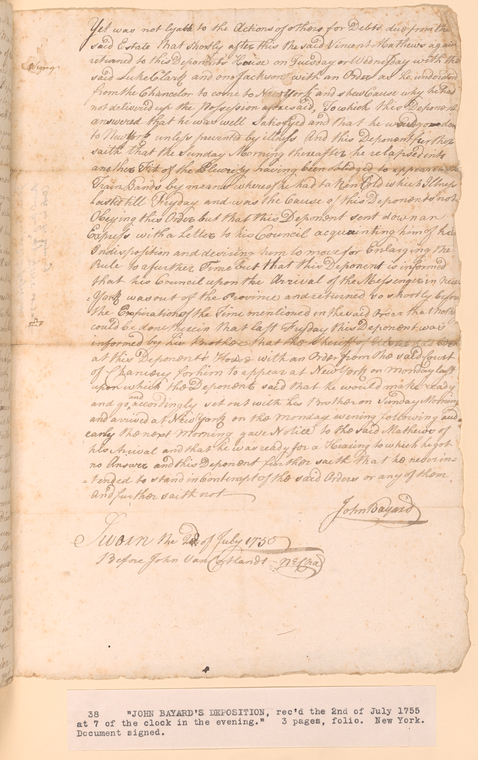 Yet was not lyable to the Actions of others for Debts due from the
said Estate that shortly after this the said Vincent Mathews again
returned to this Deponents House on Tuesday or Wednesday with the
said Luke Clerk and one Jackson with an Order as he understood
from the Chancelor to come to New York and shew Cause why he had
not delivered up the Possession aforesaid, To which this Deponent
answered that he was well Satisfied and that he would
to New York unless prevented by illness And this Deponent further
saith that the Sunday Morning thereafter he relapsed into
another Fit of the Pleurisy having been obliged to appear in the
Train Bands by means whereof he had taken Cold which Illness
lasted till Fryday and was the Cause of this Deponents not
Obeying this Order but that this Deponent sent down an
Express with a Letter to his Council acquainting him of his
Indisposition and desiring him to move for Enlarging the
Rule to a further Time but that this Deponent is informed
that his Council upon the Arrival of the Messenger in New
York was out of the Province and returned so shortly before
the Expiration of the Time mentioned in the said Order that
could be done therein that last Fryday this Deponent was
informed by his Brother that the Sheriff
at this Deponents House with an Order from the said Court
of Chancery for him to appear at New York on Monday last
upon which the Deponent said that he would make ready
and go and accordingly set out with his Brother on Sunday Morning
and arrived at New York on the Monday evening following and
early the next Morning gave Notice to the said Mathews of
his Arival and that he was ready for a Hearing to which he got
no Answer and this Deponent further saith that he never in=
tended to stand in Contempt of the said Orders or any of them
and further saith not
John Bayard
Sworn the 2d of July 1755
Before John Van Cortlandt
38 "JOHN BAYARD'S DEPOSITION, rec'd the 2nd of July 1755
at 7 of the clock in the evening." 3 pages, folio. New York.
Document signed.